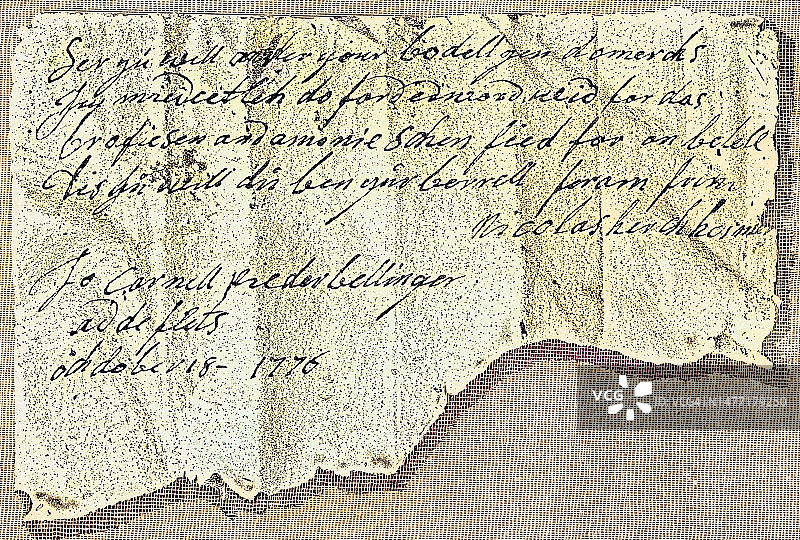 Ser yu will orter your bodellyen do merchs
Immiedeetleh do ford edward weid for das
brofiesen and amonieschen fied for on betell
Dis yu will dis ben yur berrell foram frind
Nicolas herchheimer
To Cornell pieder bellinger
ad de flets
ochdober 18 - 1776
VCG